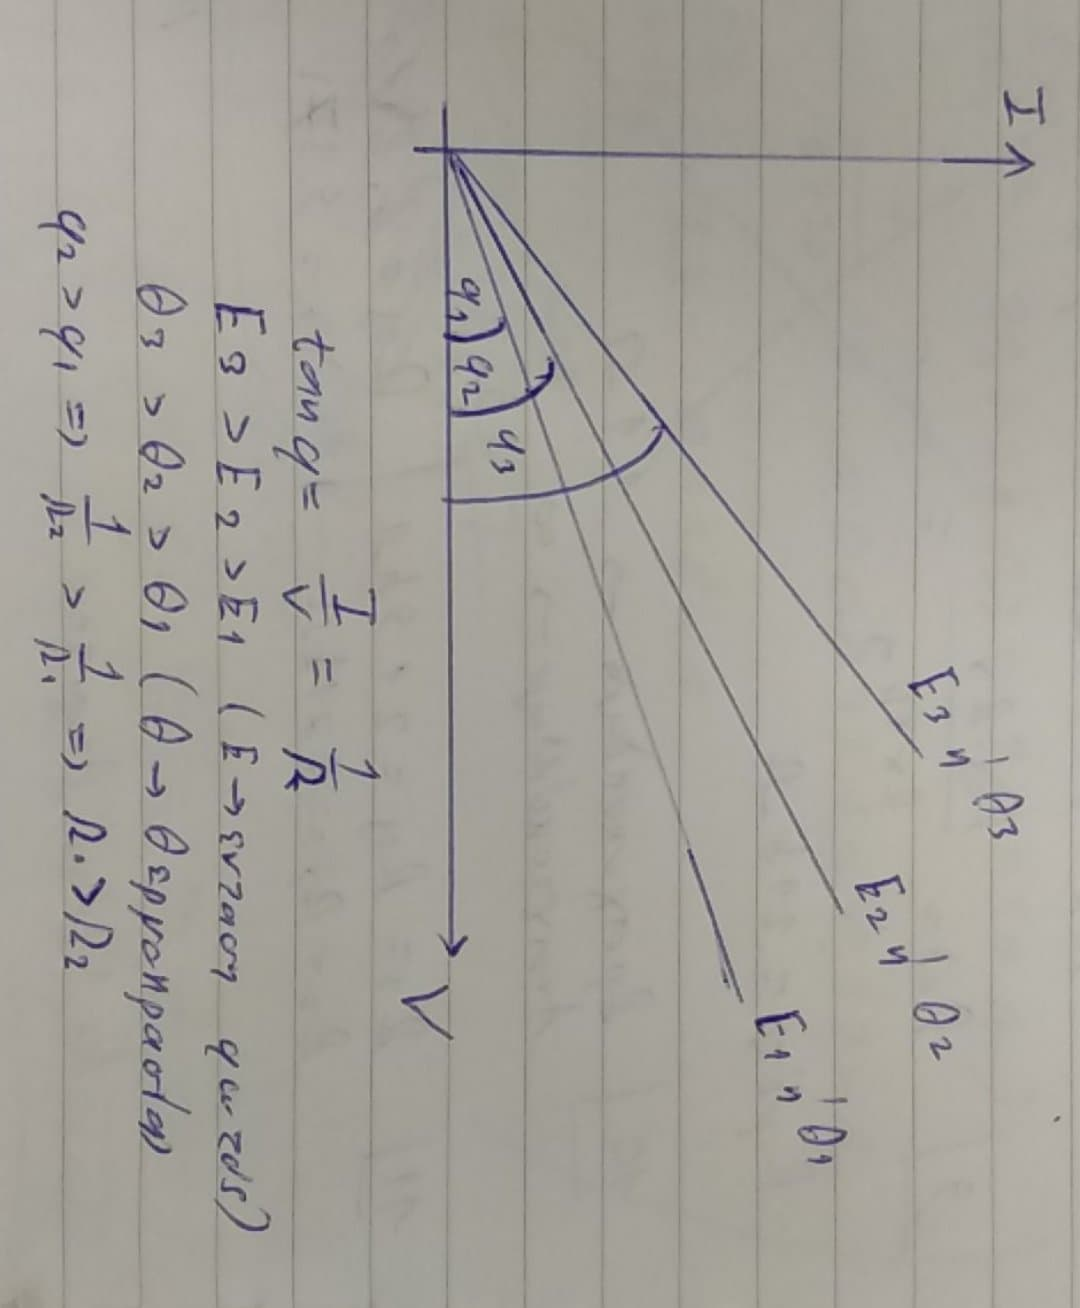 I
E3 ή θ3
E2 ή θ2
E1 ή θ1
φ1
φ2
φ3
V
tanφ = I/V = 1/R
E3 > E2 > E1 (E → ένταση φωτός)
θ3 > θ2 > θ1 (θ → θερμοκρασία)
φ2 > φ1 => 1/R2 > 1/R1 => R1 > R2